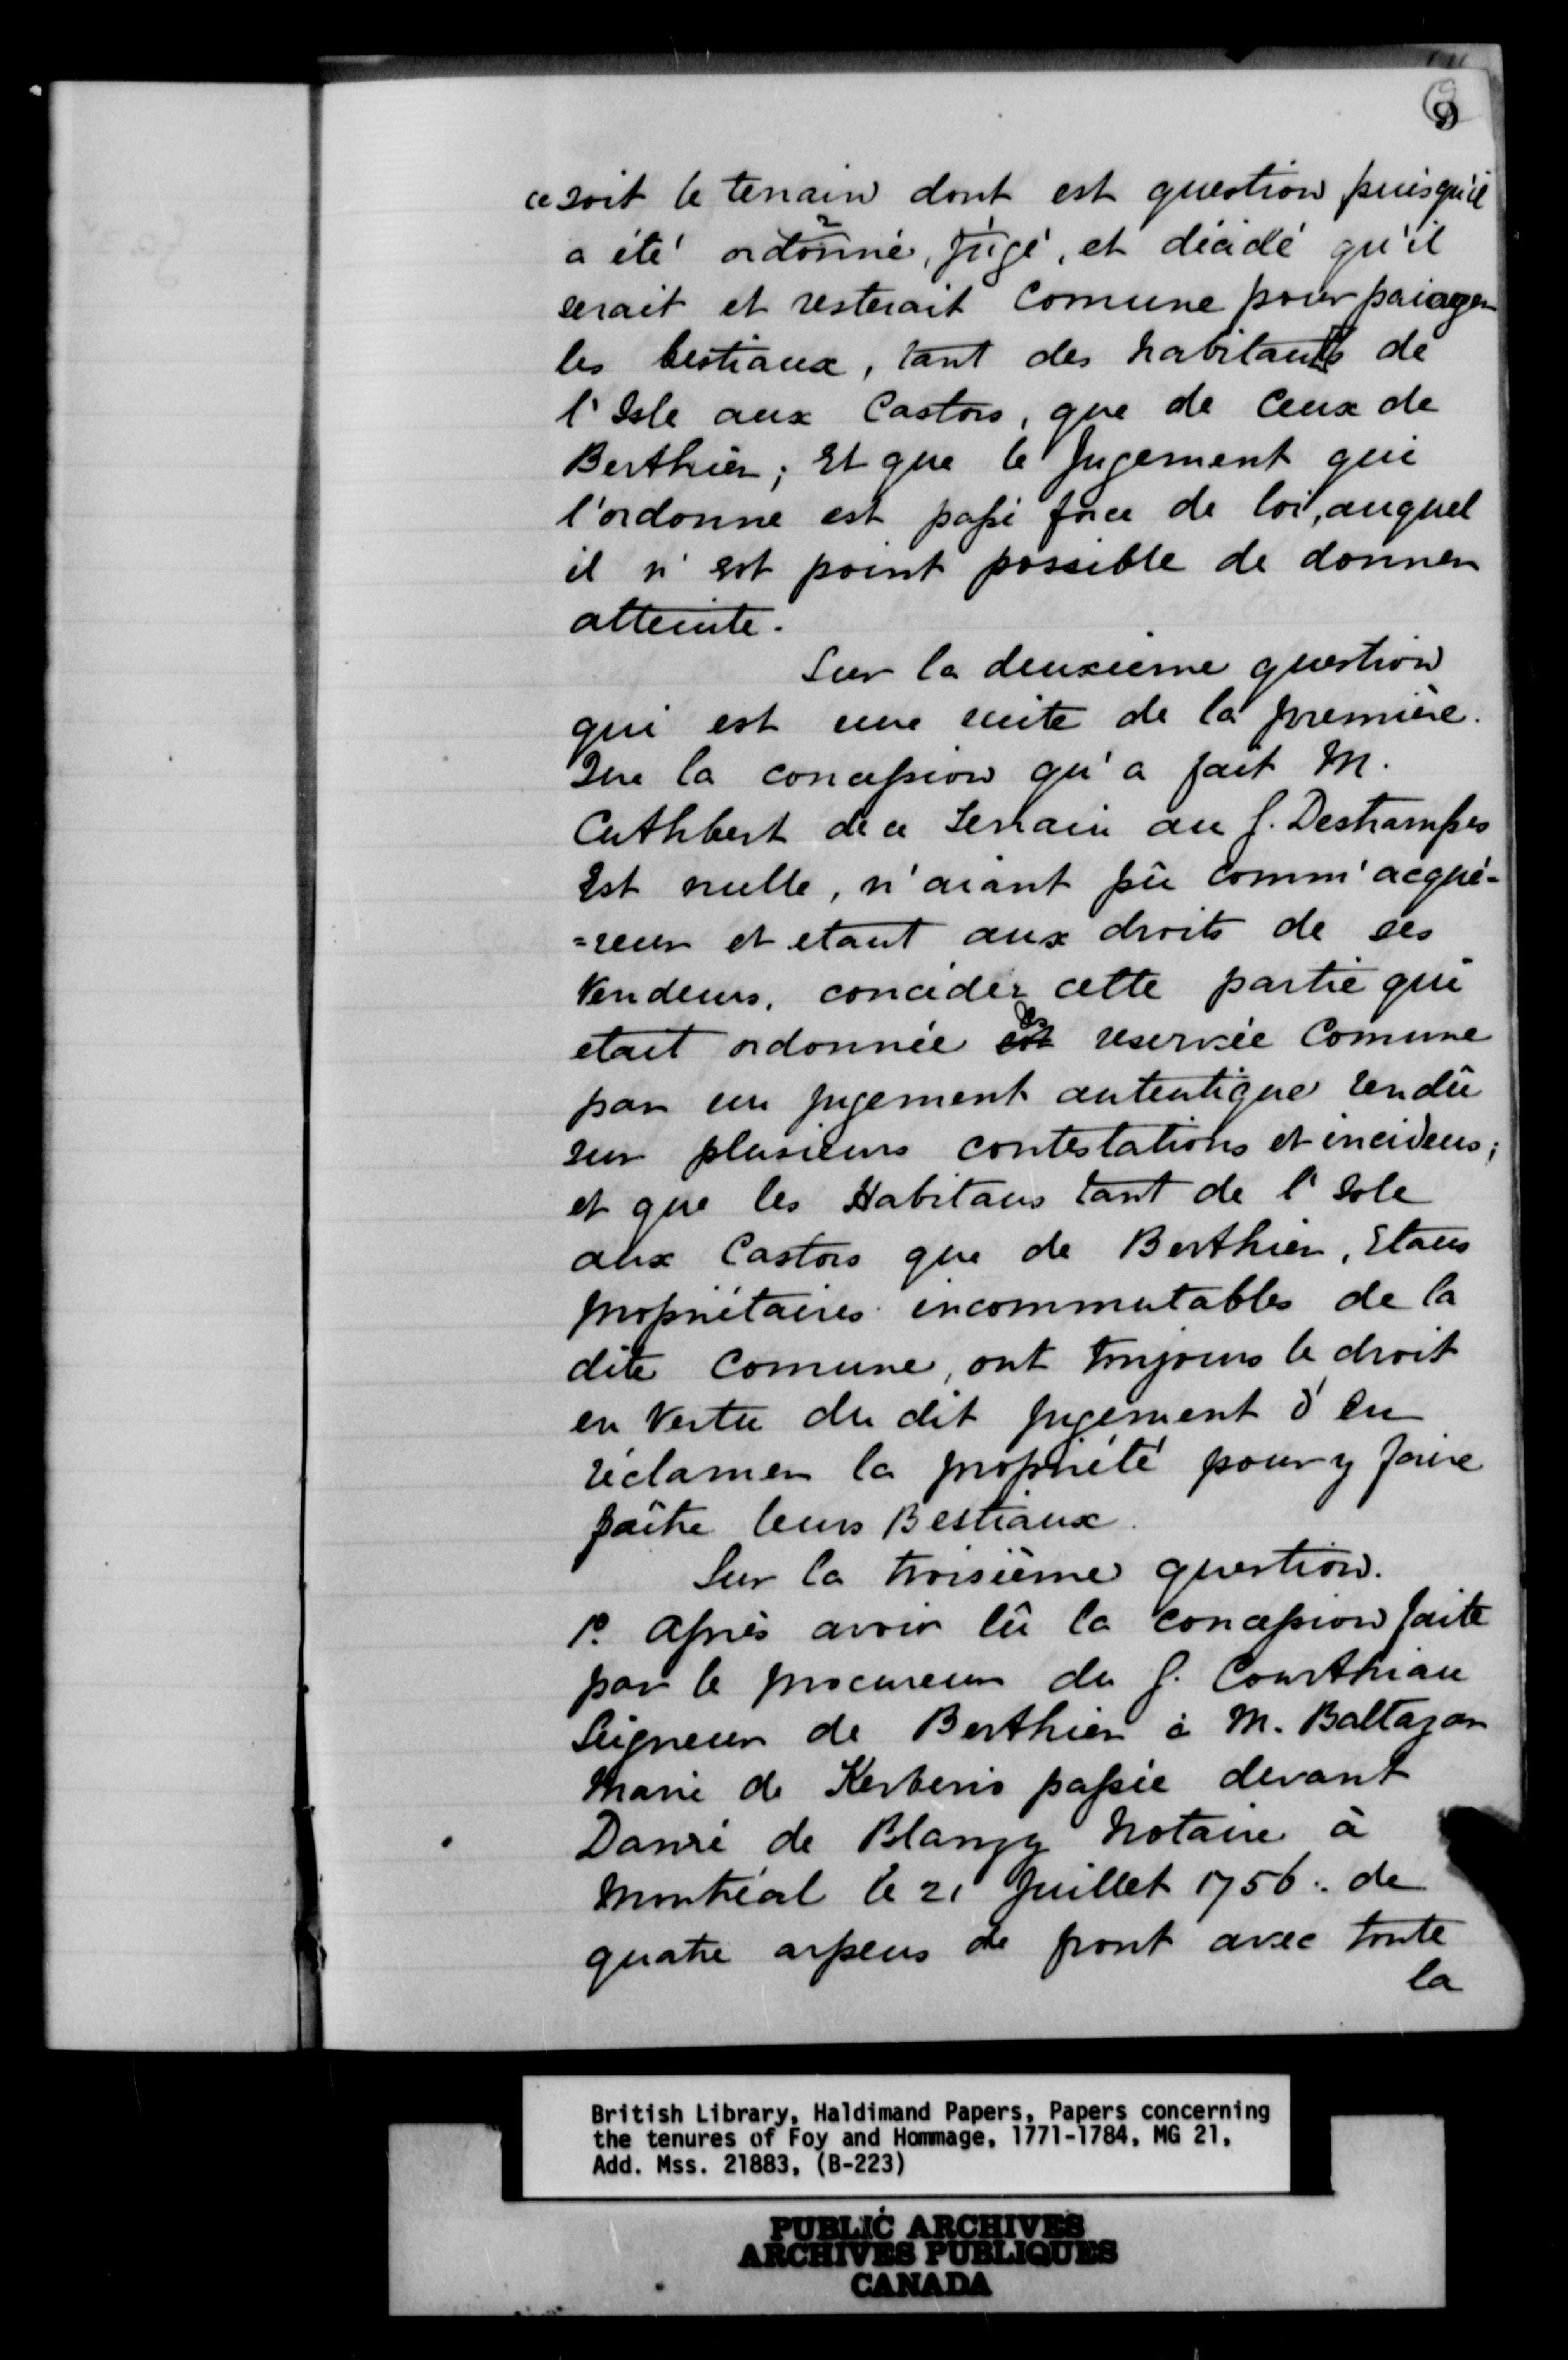 9
ce soit le terrain dont est question puisqu'il
a été ordonné, jugé, et décidé qu'il
serait et resterait Comune pour paiager
les bestiaux, tant des habitants de
l'Isle aux Castors, que de Ceux de
Berthier; Et que le Jugement qui
l'ordonne est passé force de loi, auquel
il n'est point possible de donner
atteinte.
Sur la deuxieme question
qui est une suite de la première.
Que la concession qu'a fait M.
Cuthbert de ce Terrain au S. Destrampes
Est nulle, n'aiant pû comm' acqué-
=reur et etant aux droits de ses
Vendeurs, concéder cette partie qui
etait ordonnée et reservée Comune
par un jugement autentique rendû
sur plusieurs contestations et incidens;
et que les Habitans tant de l'Isle
aux Castors que de Berthier, Etans
propriétaires incommutables de la
dite Comune, ont toujours le droit
en Vertu du dit jugement d'en
réclamer la propriété pour y faire
paître leurs Bestiaux.
Sur la troisième question.
1º. Après avoir lû la concession faite
par le procureur du S. Courthiau
Seigneur de Berthier à M. Baltazar
Marie de Kerberio passée devant
Danré de Blanzy Notaire à
Montréal le 21 Juillet 1756. de
quatre arpens de front avec toute
la
British Library, Haldimand Papers, Papers concerning
the tenures of Foy and Hommage, 1771-1784, MG 21,
Add. Mss. 21883, (B-223)
PUBLIC ARCHIVES
ARCHIVES PUBLIQUES
CANADA